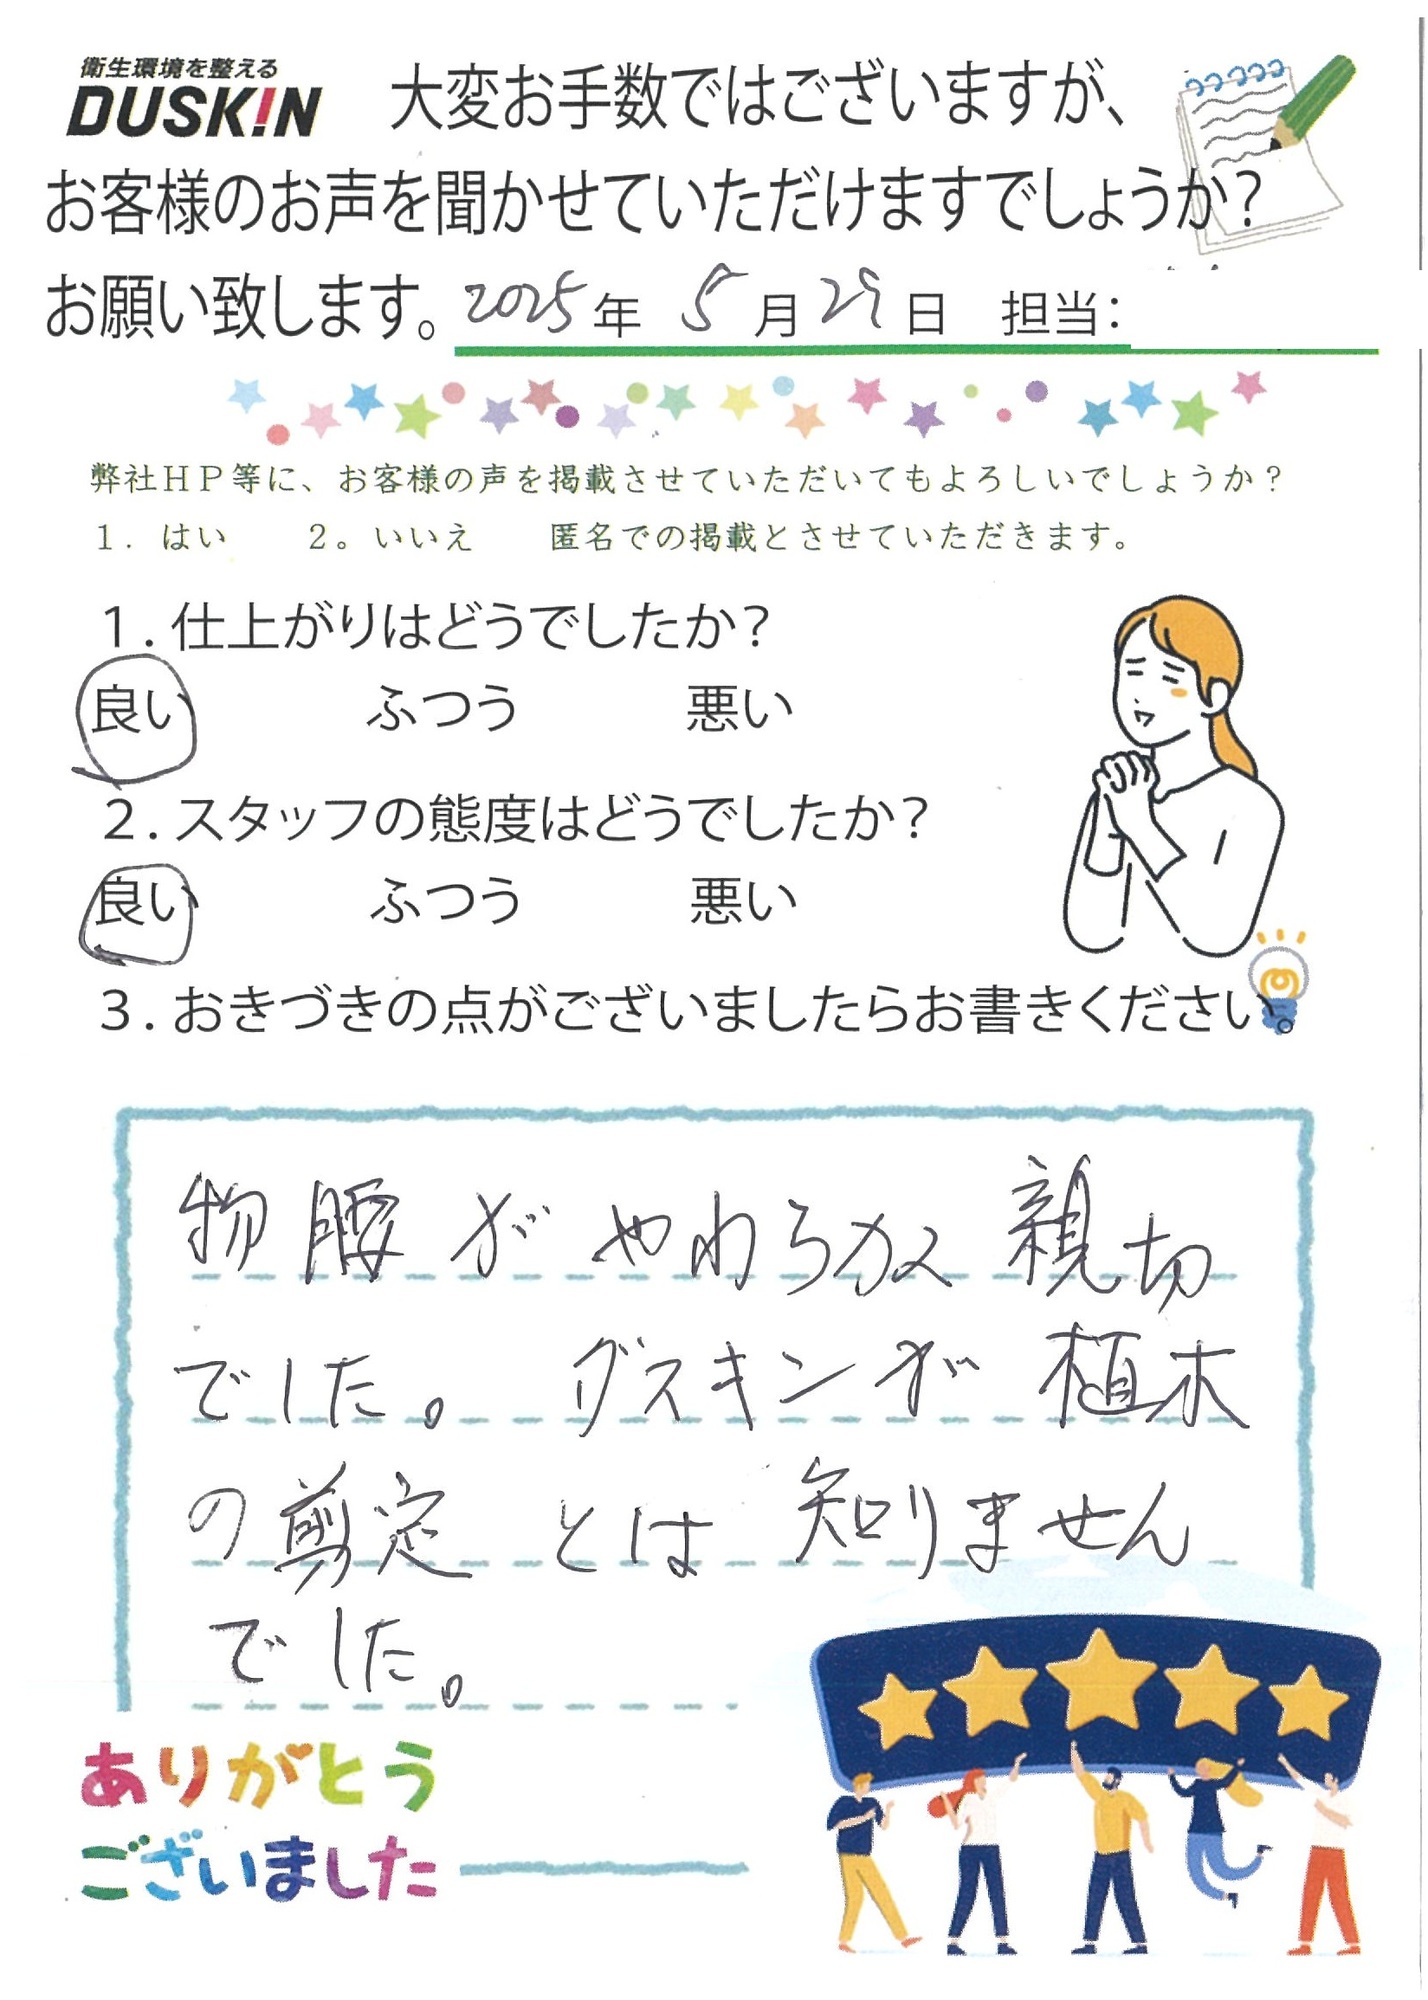 衛生環境を整える
DUSKIN
大変お手数ではございますが、
お客様のお声を聞かせていただけますでしょうか?
お願い致します。2025年 5月29日 担当:
弊社HP等に、お客様の声を掲載させていただいてもよろしいでしょうか?
1. はい 2。いいえ 匿名での掲載とさせていただきます。
1.仕上がりはどうでしたか?
良い ふつう 悪い
2.スタッフの態度はどうでしたか?
良い ふつう 悪い
3.おきづきの点がございましたらお書きください。
物腰がやわらかく親切
でした。ダスキンが植木
の剪定とは知りません
でした。
ありがとう
ございました